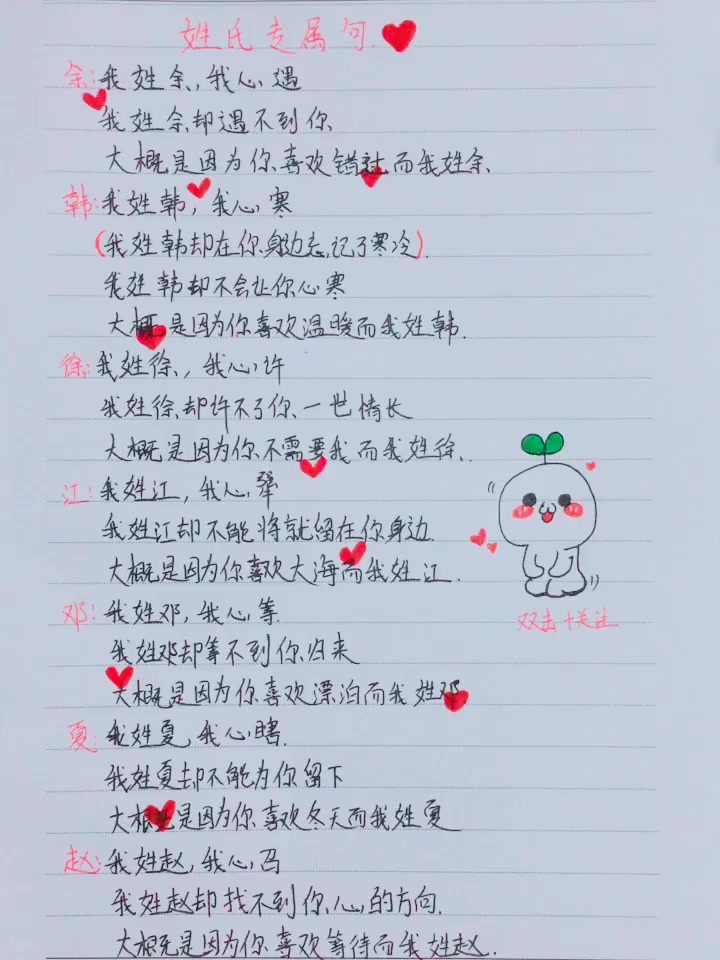 姓氏专属句
余:我姓余,我心遇
我姓余却遇不到你
大概是因为你喜欢错过而我姓余
韩:我姓韩,我心寒
(我姓韩却在你身边忘记了寒冷).
我姓韩却不会让你心寒
大概是因为你喜欢温暖而我姓韩.
徐:我姓徐,我心许
我姓徐却许不了你一世情长
大概是因为你不需要我而我姓徐.
江:我姓江,我心犟
我姓江却不能将就留在你身边.
大概是因为你喜欢大海而我姓江.
双击+关注
邓:我姓邓,我心等.
我姓邓却等不到你归来
大概是因为你喜欢漂泊而我姓邓
夏:我姓夏,我心瞎.
我姓夏却不能为你留下
大概是因为你喜欢冬天而我姓夏
赵:我姓赵,我心召
我姓赵却找不到你心的方向.
大概是因为你喜欢等待而我姓赵.